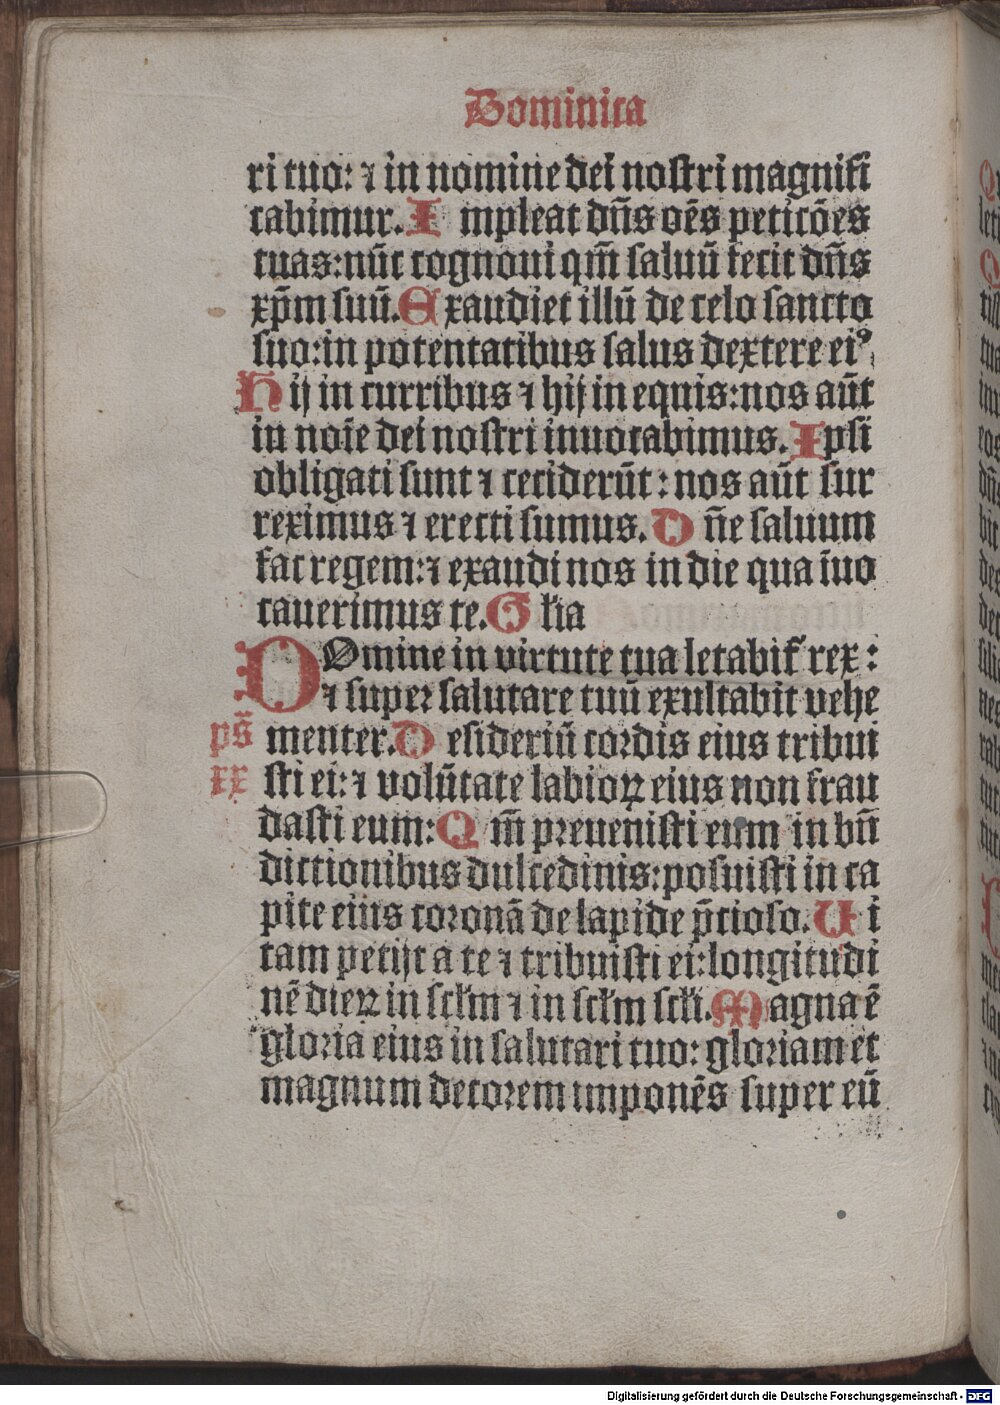 Dominica
ri tuo: ⁊ in nomine dei nostri magnifi
cabimur. I mpleat dn̄s oēs peticōes
tuas: nūc cognoui qm̄ saluū fecit dn̄s
xp̄m suū. E xaudiet illū de celo sancto
suo: in potentatibus salus dextere eiꝰ.
H ij in curribus ⁊ hij in equis: nos aūt
in noīe dei nostri inuocabimus. I psi
obligati sunt ⁊ ceciderūt: nos aūt sur
reximus ⁊ erecti sumus. D n̄e saluum
fac regem: ⁊ exaudi nos in die qua īuo
cauerimus te. G łia
DOmine in virtute tua letabit᷑ rex:
⁊ super salutare tuū exultabit vehe
ps̄ menter. D esideriū cordis eius tribui
xx sti ei: ⁊ volūtate labioꝝ eius non frau
dasti eum: Q m̄ preuenisti eum in bn̄
dictionibus dulcedinis: posuisti in ca
pite eius coronā de lapide p̄cioso. U i
tam petijt a te ⁊ tribuisti ei: longitudi
nē dieꝝ in scłm ⁊ in scłm scłi. M agna ē
gloria eius in salutari tuo: gloriam et
magnum decorem imponēs super eū
Digitalisierung gefördert durch die Deutsche Forschungsgemeinschaft - DFG